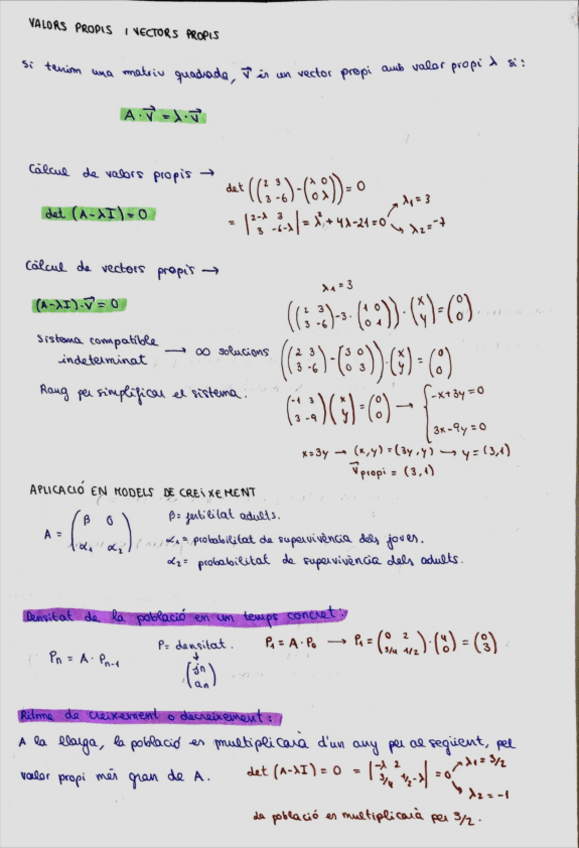 VALORS PROPIS I VECTORS PROPIS
Si tenim una matriu quadrada, v⃗ és un vector propi amb valor propi λ si:
A · v⃗ = λ · v⃗
Càlcul de valors propis →
det((2 3 / 3 -6) - (λ 0 / 0 λ)) = 0
det (A-λI) = 0
= |2-λ 3 / 3 -6-λ| = λ² + 4λ - 21 = 0 → λ1 = 3 → λ2 = -7
Càlcul de vectors propis →
λ1 = 3
(A-λI) · v⃗ = 0
((2 3 / 3 -6) - 3 · (1 0 / 0 1)) · (x / y) = (0 / 0)
Sistema compatible indeterminat → ∞ solucions
((2 3 / 3 -6) - (3 0 / 0 3)) · (x / y) = (0 / 0)
Rang per simplificar el sistema.
(-1 3 / 3 -9) (x / y) = (0 / 0) → { -x+3y=0 / 3x-9y=0
x=3y → (x,y) = (3y,y) → y = (3,1)
v⃗ propi = (3,1)
APLICACIÓ EN MODELS DE CREIXEMENT
A = (β 0 / α1 α2)
β = fertilitat adults.
α1 = probabilitat de supervivència dels joves.
α2 = probabilitat de supervivència dels adults.
Densitat de la població en un temps concret:
Pn = A · Pn-1
P = densitat.
(jn / an)
P1 = A · P0 → P1 = (0 2 / 3/4 1/2) · (4 / 0) = (0 / 3)
Ritme de creixement o decreixement:
A la llarga, la població es multiplicarà d'un any per al següent, pel
valor propi més gran de A.
det (A-λI) = 0 = |-λ 2 / 3/4 1/2-λ| = 0 → λ1 = 3/2 → λ2 = -1
La població es multiplicarà per 3/2.